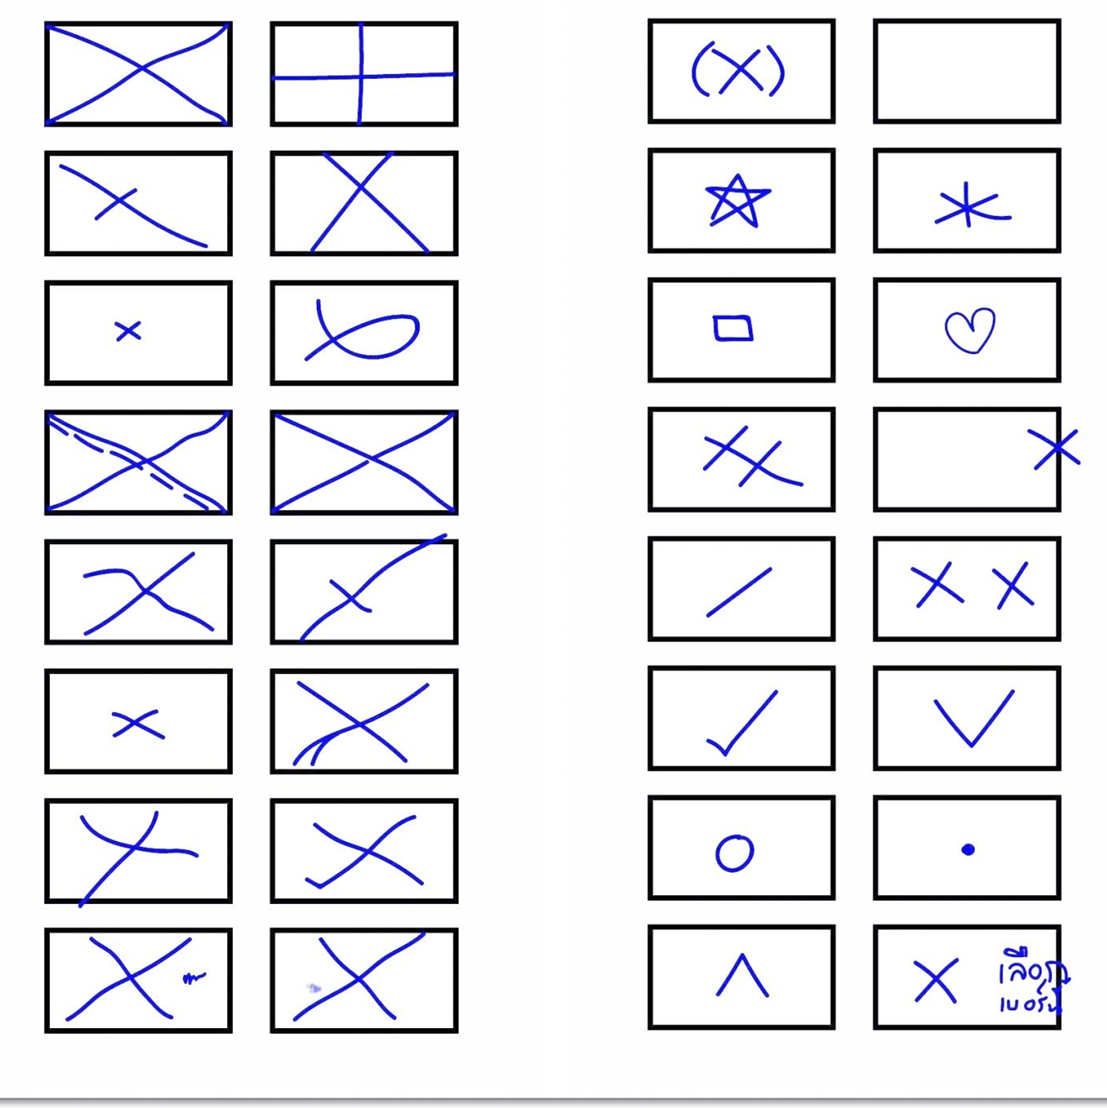 เลือก
เบอร์นี้